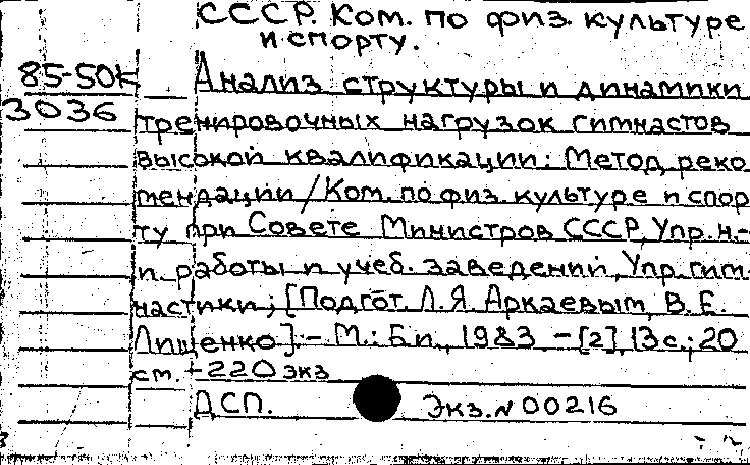 СССР. Ком. по физ. культуре
и спорту.
85-50К
3036
Анализ структуры и динамики
тренировочных нагрузок гимнастов
высокой квалификации: Метод. реко
мендации/Ком. по физ. культуре и спор
ту при Совете Министров СССР, Упр. н.-
и. работы и учеб. заведений, Упр. гим
настики; [Подгот. Л.Я. Аркаевым, В.Е.
Лищенко]. - М.: Б.и., 1983 - [2], 13с.; 20
см. - 220 экз
ДСП. Экз. № 00216